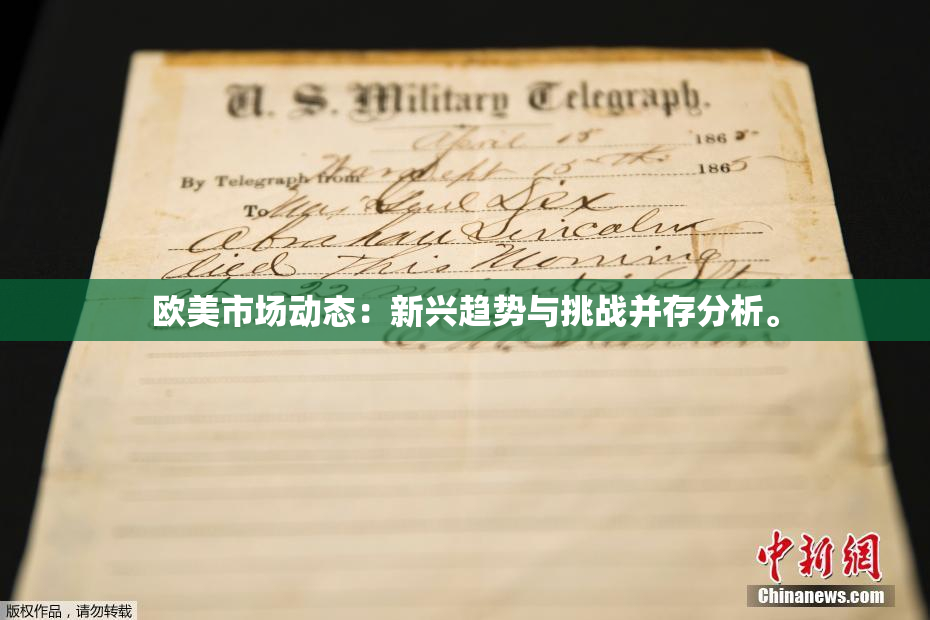 U. S. Military Telegraph.
April 15 1865
By Telegraph from War Dept 15th 1865
To Maj Genl Dix
Abraham Lincoln
died This Morning
at 22 minutes after
欧美市场动态：新兴趋势与挑战并存分析。
中新網
Chinanews.com
版权作品，请勿转载